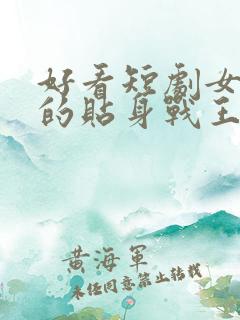 好看短劇女
的貼身戰王
黃海軍
未經同意禁止轉載